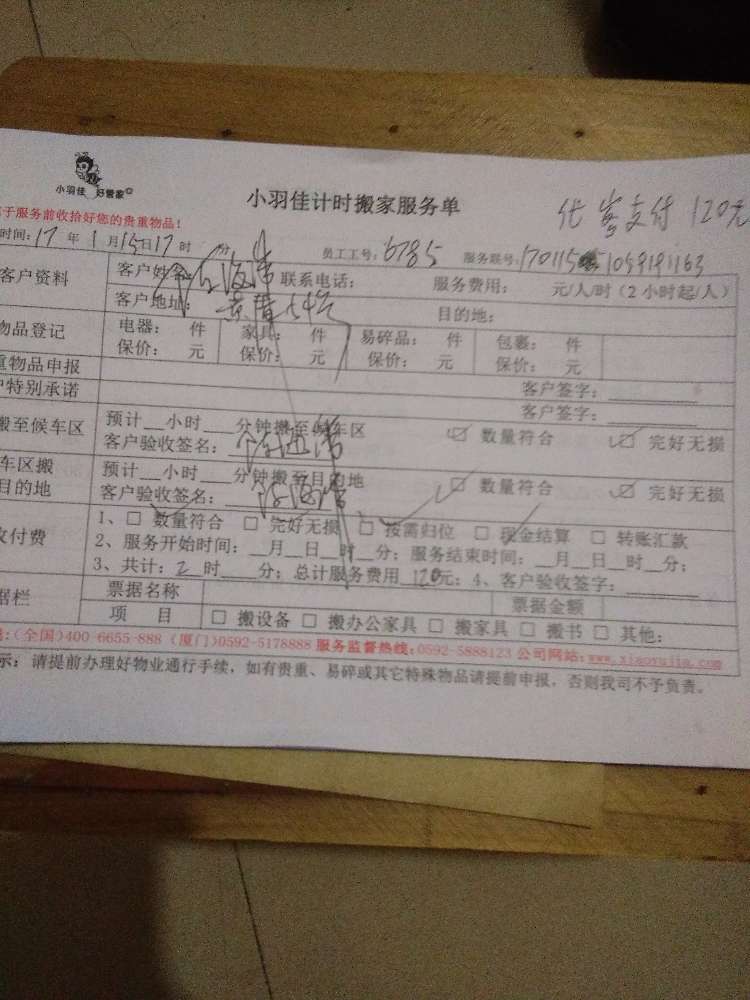 小羽佳 好管家
小羽佳计时搬家服务单
代客支付 120元
子服务前收拾好您的贵重物品!
时间:17年1月15日17时 分 员工工号:6785 服务联号:170115 1059191163
客户资料 客户姓名: 联系电话: 服务费用: 元/人/时(2小时起/人)
客户地址: 目的地:
物品登记 电器: 件 家具: 件 易碎品: 件 包裹: 件
保价: 元 保价: 元 保价: 元 保价: 元
重物品申报 客户签字:
户特别承诺 客户签字:
搬至候车区 预计__小时__分钟搬至候车区
客户验收签名: ☑ 数量符合 ☑ 完好无损
车区搬 预计__小时__分钟搬至目的地
目的地 客户验收签名: ☑ 数量符合 ☑ 完好无损
收付费 1、□ 数量符合 □ 完好无损 □ 按需归位 □ 现金结算 □ 转账汇款
2、服务开始时间:__月__日__时__分;服务结束时间:__月__日__时__分;
3、共计:2时__分;总计服务费用 120元;4、客户验收签字:
据栏 票据名称 票据金额
项 目 □ 搬设备 □ 搬办公家具 □ 搬家具 □ 搬书 □ 其他:
:(全国)400-6655-888 (厦门)0592-5178888 服务监督热线:0592-5888123 公司网站:www.xiaoyujia.com
示:请提前办理好物业通行手续,如有贵重、易碎或其它特殊物品请提前申报,否则我司不予负责。